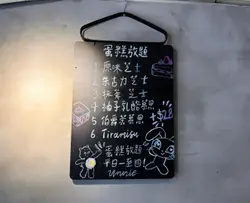 蛋糕放題
1 原味芝士
2 朱古力芝士
3 抹茶芝士
4 柚子乳酪慕思
5 伯爵茶慕思
6 Tiramisu
+$28
蛋糕放題
平日一至四!
Unnie